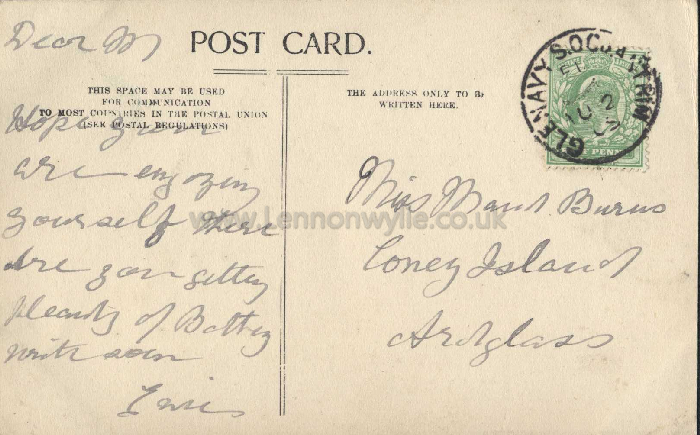 Dear M
POST CARD.
THIS SPACE MAY BE USED
FOR COMMUNICATION
TO MOST COUNTRIES IN THE POSTAL UNION
(SEE POSTAL REGULATIONS)
THE ADDRESS ONLY TO BE
WRITTEN HERE.
GLENAVY S.O. CO. ANTRIM
PENN
Hope you
are enjoying
yourself there
Are you getting
pleanty of
write soon
Miss Maud Burns
Coney Island
Ardglass
www.Lennonwylie.co.uk